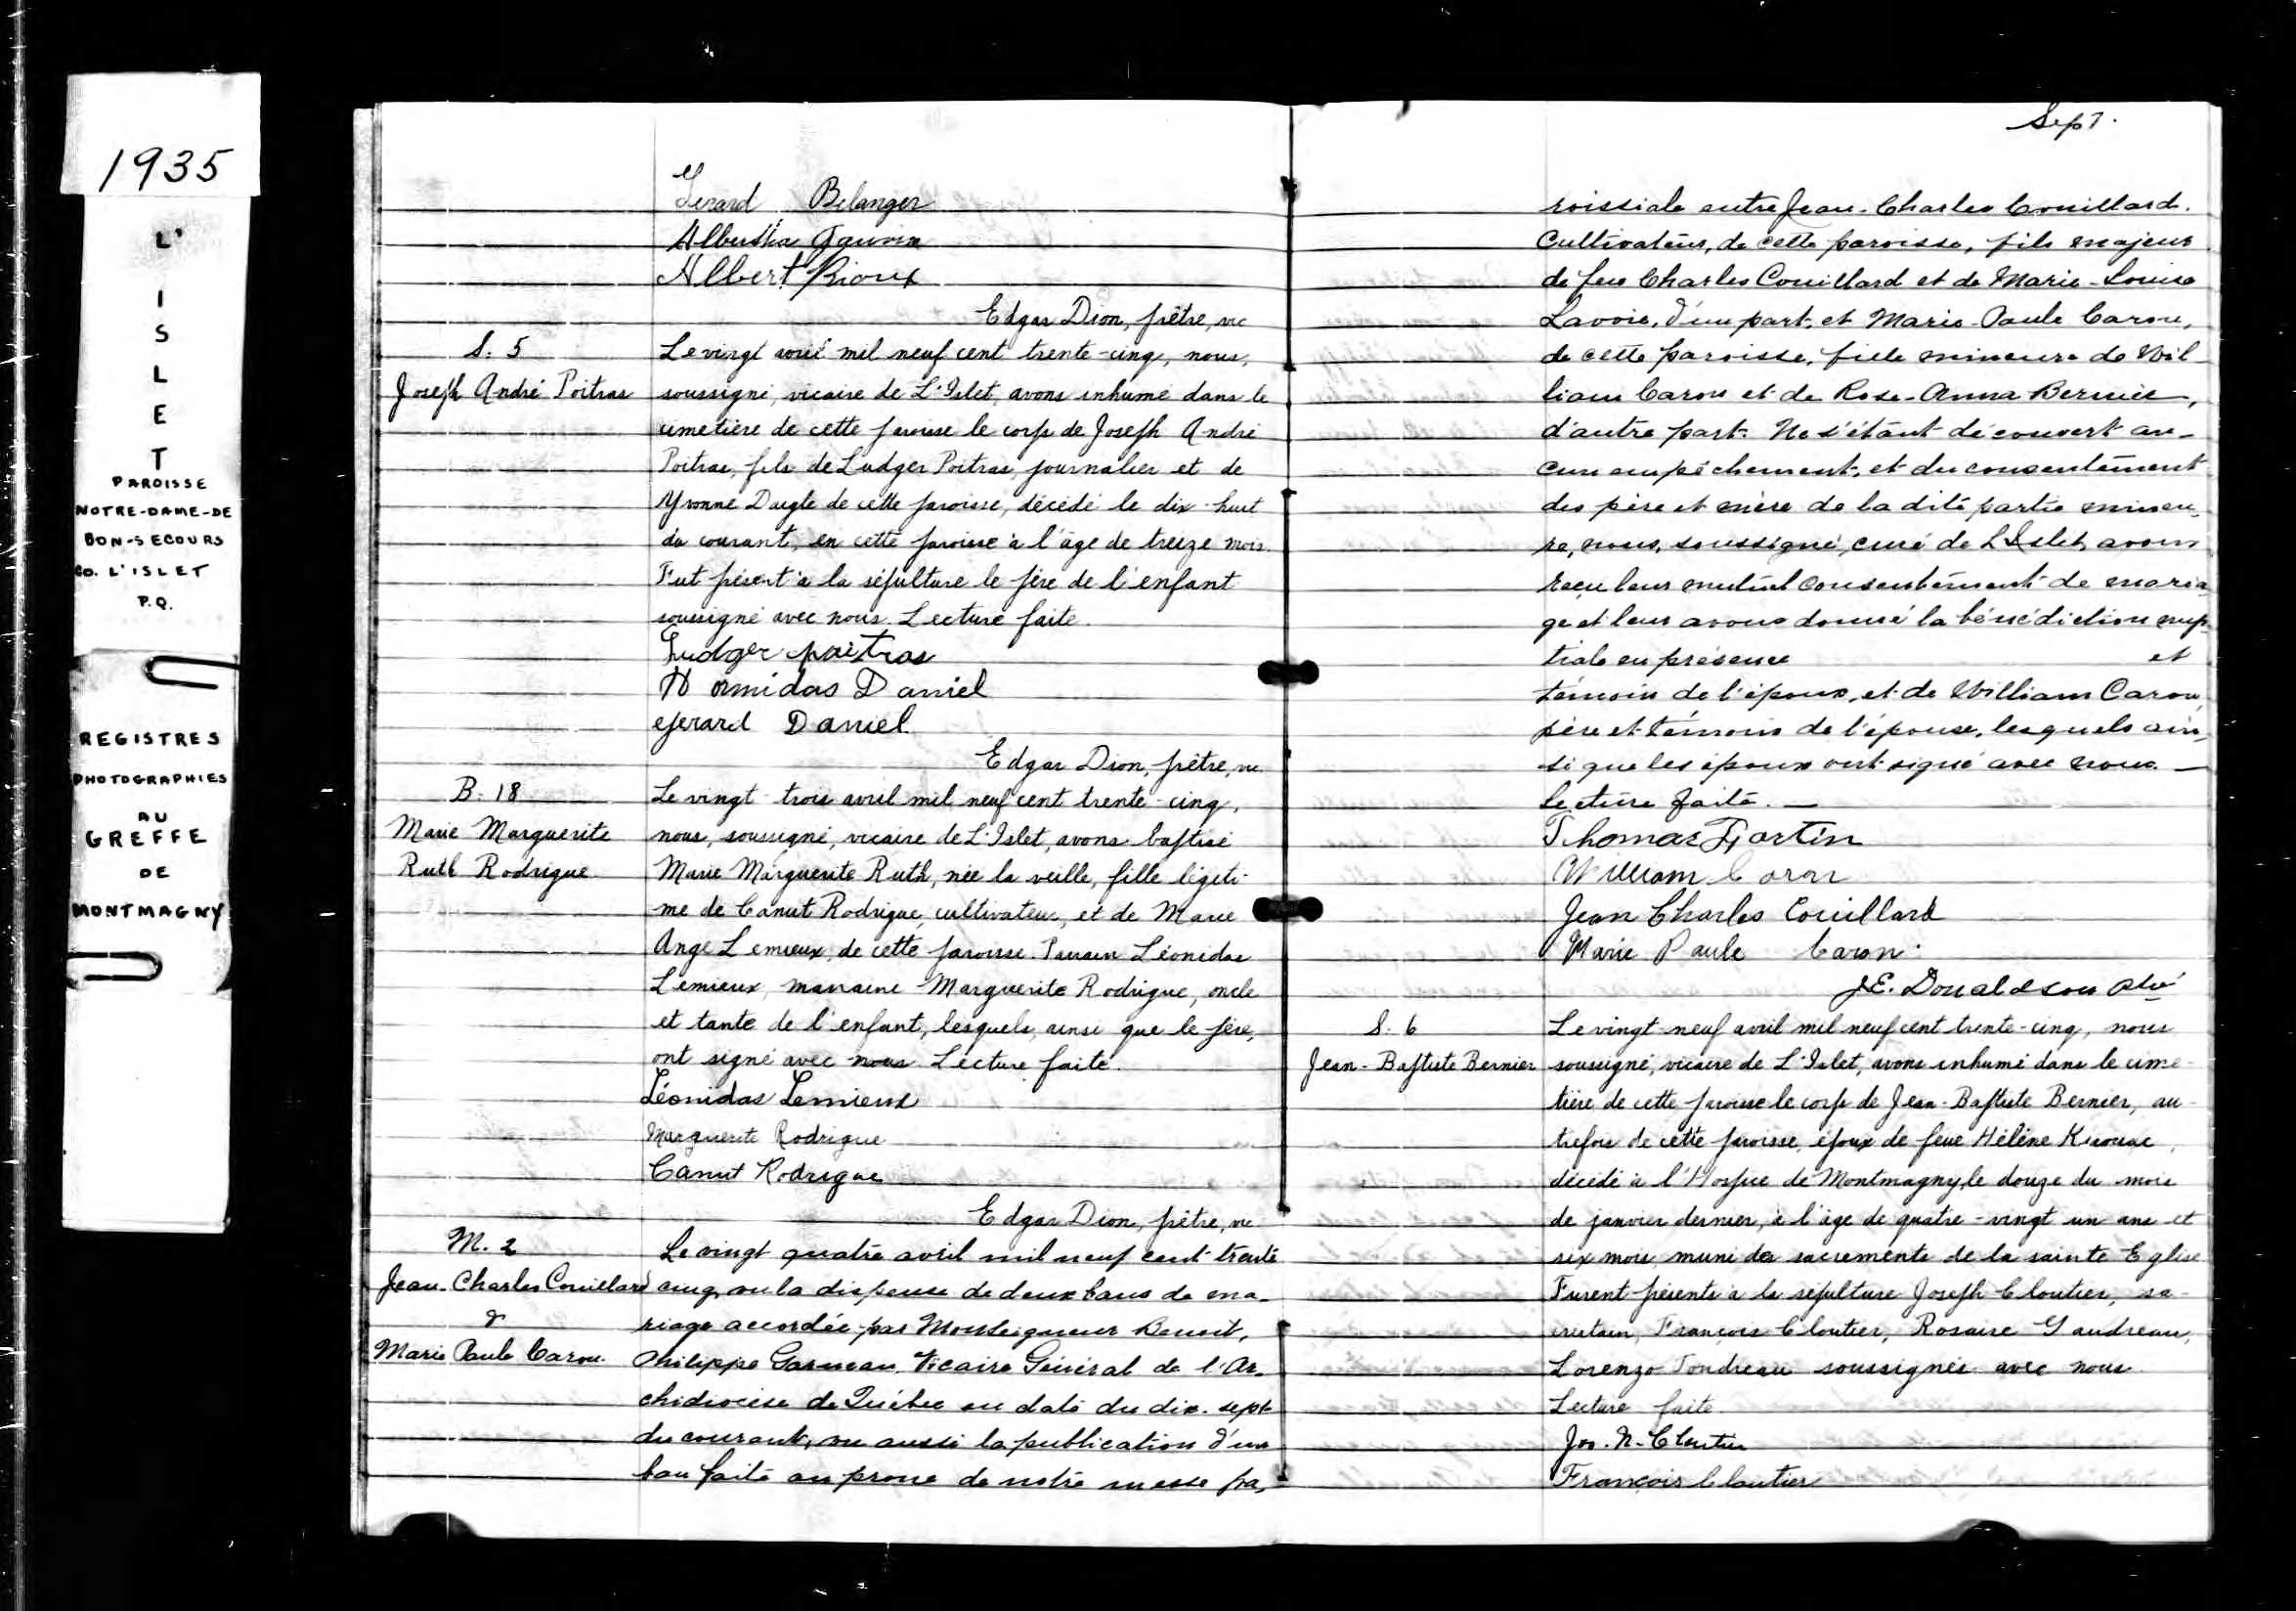 1935
L'
I
S
L
E
T
PAROISSE
NOTRE-DAME-DE
BON-SECOURS
Co. L'ISLET
P.Q.
REGISTRES
PHOTOGRAPHIES
AU
GREFFE
DE
MONTMAGNY
Gerard Belanger
Albertha Gauvin
Albert Rioux
Edgar Dion, prêtre, vic
S. 5
Joseph André Poitras
Le vingt avril mil neuf cent trente-cinq, nous,
soussigné, vicaire de L'Islet, avons inhumé dans le
cimetière de cette paroisse le corps de Joseph André
Poitras, fils de Ludger Poitras, journalier et de
Yvonne Daigle de cette paroisse, décédé le dix-huit
du courant, en cette paroisse à l'âge de treize mois.
Fut présent à la sépulture le père de l'enfant
soussigné avec nous. Lecture faite.
Ludger poitras
Hormidas Daniel
gerard Daniel
Edgar Dion, prêtre, vic.
B. 18
Marie Marguerite
Ruth Rodrigue
Le vingt-trois avril mil neuf cent trente-cinq,
nous, soussigné, vicaire de L'Islet, avons baptisé
Marie Marguerite Ruth, née la veille, fille légiti-
me de Canut Rodrigue, cultivateur, et de Marie
Ange Lemieux, de cette paroisse. Parrain Léonidas
Lemieux, marraine Marguerite Rodrigue, oncle
et tante de l'enfant, lesquels, ainsi que le père,
ont signé avec nous. Lecture faite.
Léonidas Lemieux
Marguerite Rodrigue
Canut Rodrigue
Edgar Dion, prêtre, vic
M. 2
Jean-Charles Couillard
&
Marie Paule Caron.
Le vingt quatre avril mil neuf cent trente
cinq, vu la dispense de deux bans de ma-
riage accordée par Monseigneur Benoit,
Philippe Garneau, Vicaire Général de l'Ar-
chidiocèse de Québec en date du dix-sept
du courant, vu aussi la publication d'un
ban faite au prone de notre messe pa-
Sept.
roissiale entre Jean-Charles Couillard.
Cultivateur, de cette paroisse, fils majeur
de feu Charles Couillard et de Marie-Louise
Lavoie, d'une part, et Marie-Paule Caron,
de cette paroisse, fille mineure de Wil-
liam Caron et de Rose-Anna Bernier,
d'autre part. Ne s'étant découvert au-
cun empêchement, et du consentement
des père et mère de la dite partie mineu-
re, nous, soussigné, curé de L'Islet, avons
reçu leur mutuel consentement de maria-
ge et leur avons donné la bénédiction nup-
tiale en présence et
témoin de l'époux, et de William Caron,
père et témoin de l'épouse, lesquels ain-
si que les époux ont signé avec nous. —
Lecture faite. —
Thomas Fortin
William Caron
Jean Charles Couillard
Marie Paule Caron.
J.E. Donaldson Ptre
S. 6
Jean-Baptiste Bernier
Le vingt-neuf avril mil neuf cent trente-cinq, nous
soussigné, vicaire de L'Islet, avons inhumé dans le cime-
tière de cette paroisse le corps de Jean-Baptiste Bernier, au-
trefois de cette paroisse, époux de feue Hélène Kirouac,
décédé à l'Hospice de Montmagny, le douze du mois
de janvier dernier, à l'âge de quatre-vingt un ans et
six mois, muni des sacrements de la sainte Eglise
Furent présents à la sépulture Joseph Cloutier, sa-
cristain, François Cloutier, Rosaire Gaudreau,
Lorenzo Tondreau soussignés avec nous.
Lecture faite.
Jos. N. Cloutier
François Cloutier